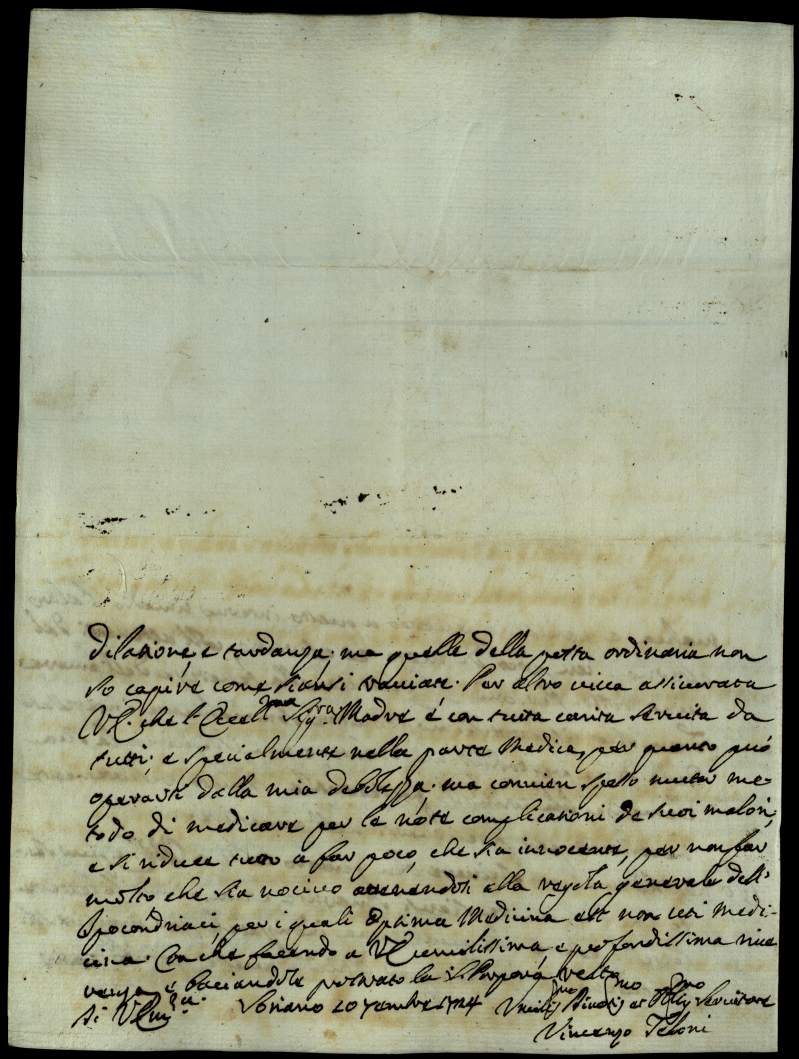 dilazione, e tardanza; ma quelle della posta ordinaria non
so capire come siansi variate. Per altro viva assicurata
VE. che l'Eccell.ma Sig.ra Madre è con tutta carità servita da
tutti, e specialmente nella parte Medica, per quanto può
operarsi dalla mia debolezza. ma convien spesso mutar me-
todo di medicare per le note complicazioni de suoi malori,
e si riduce tutto a far poco, che sia innocente, per non far
molto che sia nocivo attenendosi alla regola generale dell'
Ipocondriaci, per i quali optima Medicina est non uti medi-
cina. Con che facendo a VE umilissima e profondissima rive
renza, e baciandole la S. Porpora resto
Di VEm.za Soriano 20 1724 Umil.mo Divot.mo et Obl.mo Servitore
Vincenzo Teloni